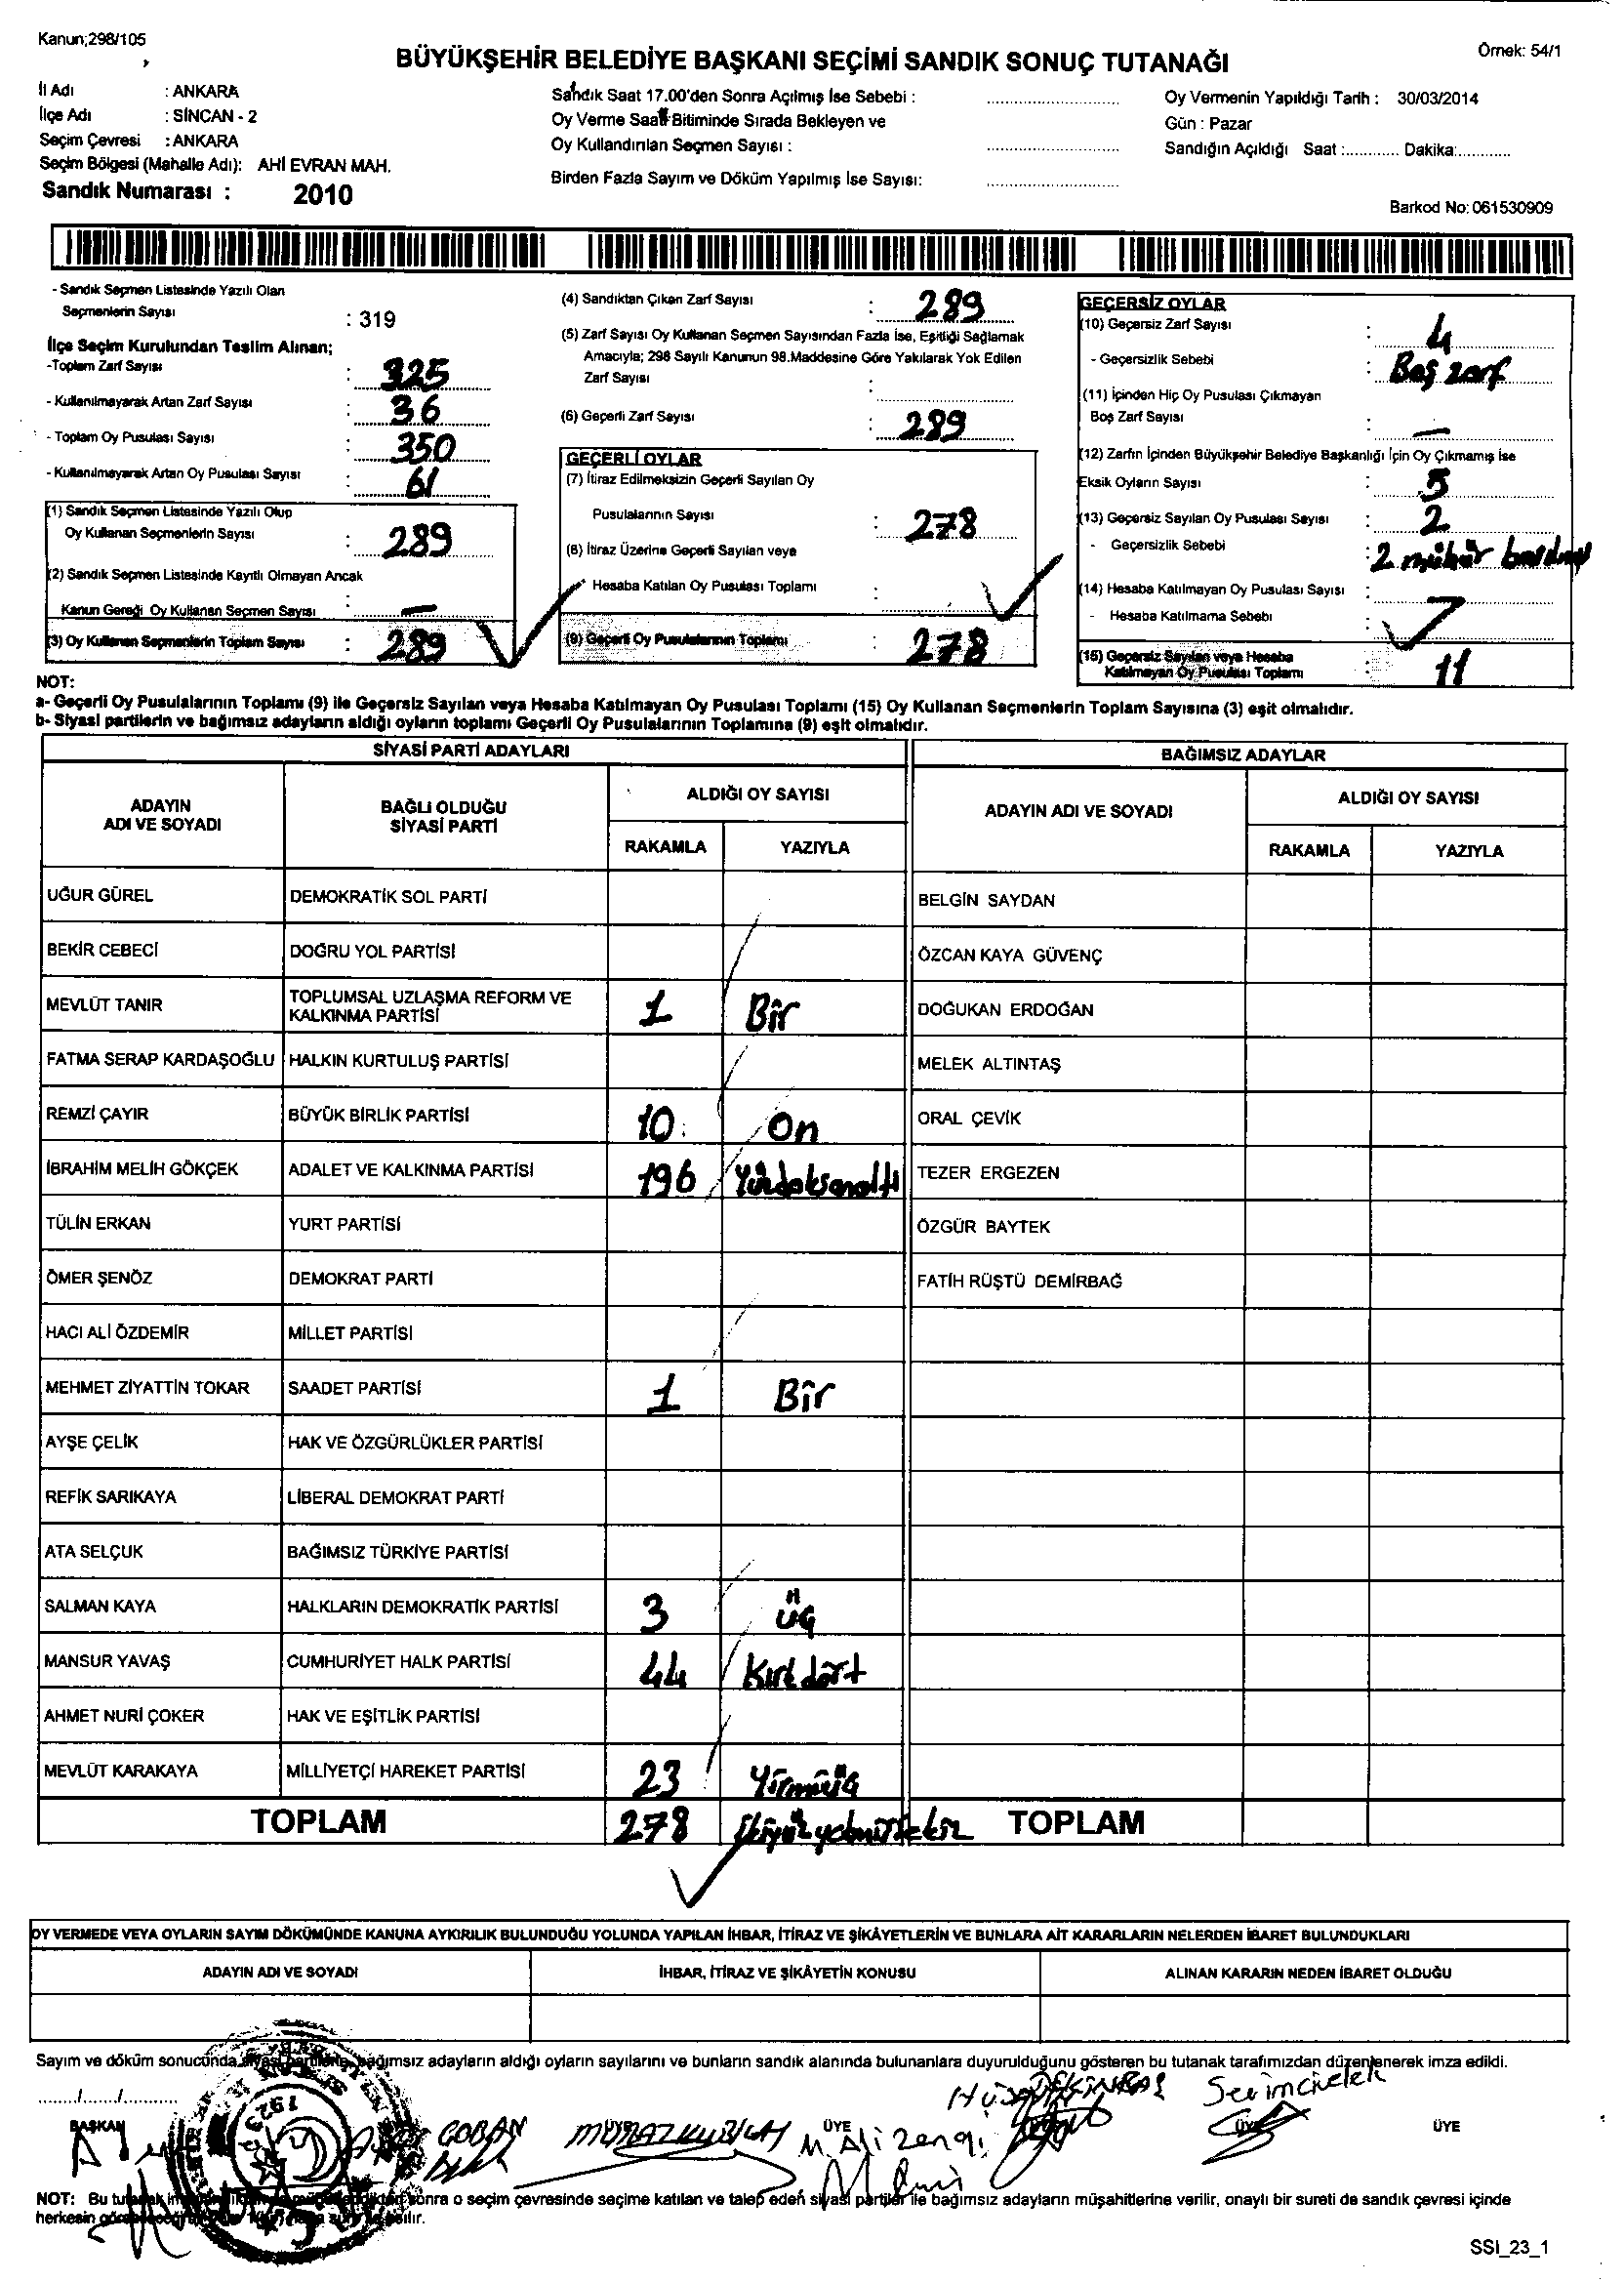 Kanun;298/105
BÜYÜKŞEHİR BELEDİYE BAŞKANI SEÇİMİ SANDIK SONUÇ TUTANAĞI
Örnek: 54/1
İl Adı : ANKARA
İlçe Adı : SİNCAN - 2
Seçim Çevresi : ANKARA
Seçim Bölgesi (Mahalle Adı): AHİ EVRAN MAH.
Sandık Numarası : 2010
Sandık Saat 17.00'den Sonra Açılmış İse Sebebi :
Oy Verme Saati Bitiminde Sırada Bekleyen ve
Oy Kullandırılan Seçmen Sayısı :
Birden Fazla Sayım ve Döküm Yapılmış İse Sayısı:
Oy Vermenin Yapıldığı Tarih : 30/03/2014
Gün : Pazar
Sandığın Açıldığı Saat :............ Dakika:...........
Barkod No: 061530909
- Sandık Seçmen Listesinde Yazılı Olan
Seçmenlerin Sayısı : 319
İlçe Seçim Kurulundan Teslim Alınan;
-Toplam Zarf Sayısı : 325
- Kullanılmayarak Artan Zarf Sayısı : 36
- Toplam Oy Pusulası Sayısı : 350
- Kullanılmayarak Artan Oy Pusulası Sayısı : 61
(1) Sandık Seçmen Listesinde Yazılı Olup
Oy Kullanan Seçmenlerin Sayısı : 289
(2) Sandık Seçmen Listesinde Kayıtlı Olmayan Ancak
Kanun Gereği Oy Kullanan Seçmen Sayısı : —
(3) Oy Kullanan Seçmenlerin Toplam Sayısı : 289
(4) Sandıktan Çıkan Zarf Sayısı : 289
(5) Zarf Sayısı Oy Kullanan Seçmen Sayısından Fazla İse, Eşitliği Sağlamak
Amacıyla; 298 Sayılı Kanunun 98.Maddesine Göre Yakılarak Yok Edilen
Zarf Sayısı :
(6) Geçerli Zarf Sayısı : 289
GEÇERLİ OYLAR
(7) İtiraz Edilmeksizin Geçerli Sayılan Oy
Pusulalarının Sayısı : 278
(8) İtiraz Üzerine Geçerli Sayılan veya
Hesaba Katılan Oy Pusulası Toplamı :
(9) Geçerli Oy Pusulalarının Toplamı : 278
GEÇERSİZ OYLAR
(10) Geçersiz Zarf Sayısı : 4
- Geçersizlik Sebebi : Boş zarf
(11) İçinden Hiç Oy Pusulası Çıkmayan
Boş Zarf Sayısı : —
(12) Zarfın İçinden Büyükşehir Belediye Başkanlığı İçin Oy Çıkmamış İse
Eksik Oyların Sayısı : 5
(13) Geçersiz Sayılan Oy Pusulası Sayısı : 2
- Geçersizlik Sebebi : 2 mühür
(14) Hesaba Katılmayan Oy Pusulası Sayısı : 7
- Hesaba Katılmama Sebebi :
(15) Geçersiz Sayılan veya Hesaba
Katılmayan Oy Pusulası Toplamı : 11
NOT:
a- Geçerli Oy Pusulalarının Toplamı (9) ile Geçersiz Sayılan veya Hesaba Katılmayan Oy Pusulası Toplamı (15) Oy Kullanan Seçmenlerin Toplam Sayısına (3) eşit olmalıdır.
b- Siyasi partilerin ve bağımsız adayların aldığı oyların toplamı Geçerli Oy Pusulalarının Toplamına (9) eşit olmalıdır.
SİYASİ PARTİ ADAYLARI
ADAYIN ADI VE SOYADI
BAĞLI OLDUĞU SİYASİ PARTİ
ALDIĞI OY SAYISI
RAKAMLA YAZIYLA
UĞUR GÜREL DEMOKRATİK SOL PARTİ
BEKİR CEBECİ DOĞRU YOL PARTİSİ
MEVLÜT TANIR TOPLUMSAL UZLAŞMA REFORM VE KALKINMA PARTİSİ 1 Bir
FATMA SERAP KARDAŞOĞLU HALKIN KURTULUŞ PARTİSİ
REMZİ ÇAYIR BÜYÜK BİRLİK PARTİSİ 10 On
İBRAHİM MELİH GÖKÇEK ADALET VE KALKINMA PARTİSİ 196 Yüzdoksanaltı
TÜLİN ERKAN YURT PARTİSİ
ÖMER ŞENÖZ DEMOKRAT PARTİ
HACI ALİ ÖZDEMİR MİLLET PARTİSİ
MEHMET ZİYATTİN TOKAR SAADET PARTİSİ 1 Bir
AYŞE ÇELİK HAK VE ÖZGÜRLÜKLER PARTİSİ
REFİK SARIKAYA LİBERAL DEMOKRAT PARTİ
ATA SELÇUK BAĞIMSIZ TÜRKİYE PARTİSİ
SALMAN KAYA HALKLARIN DEMOKRATİK PARTİSİ 3 Üç
MANSUR YAVAŞ CUMHURİYET HALK PARTİSİ 44 Kırkdört
AHMET NURİ ÇOKER HAK VE EŞİTLİK PARTİSİ
MEVLÜT KARAKAYA MİLLİYETÇİ HAREKET PARTİSİ 23 Yirmiüç
TOPLAM 278 İkiyüzyetmişsekiz
BAĞIMSIZ ADAYLAR
ADAYIN ADI VE SOYADI
ALDIĞI OY SAYISI
RAKAMLA YAZIYLA
BELGİN SAYDAN
ÖZCAN KAYA GÜVENÇ
DOĞUKAN ERDOĞAN
MELEK ALTINTAŞ
ORAL ÇEVİK
TEZER ERGEZEN
ÖZGÜR BAYTEK
FATİH RÜŞTÜ DEMİRBAĞ
TOPLAM
OY VERMEDE VEYA OYLARIN SAYIM DÖKÜMÜNDE KANUNA AYKIRILIK BULUNDUĞU YOLUNDA YAPILAN İHBAR, İTİRAZ VE ŞİKÂYETLERİN VE BUNLARA AİT KARARLARIN NELERDEN İBARET BULUNDUKLARI
ADAYIN ADI VE SOYADI
İHBAR, İTİRAZ VE ŞİKÂYETİN KONUSU
ALINAN KARARIN NEDEN İBARET OLDUĞU
Sayım ve döküm sonucunda siyasi partilerle, bağımsız adayların aldığı oyların sayılarını ve bunların sandık alanında bulunanlara duyurulduğunu gösteren bu tutanak tarafımızdan düzenlenerek imza edildi.
......./......./............
BAŞKAN ÜYE ÜYE ÜYE ÜYE
ÇOBAN
M. Ali Zengi
1923
NOT: Bu tutanak sonra o seçim çevresinde seçime katılan ve talep eden siyasi partiler ile bağımsız adayların müşahitlerine verilir, onaylı bir sureti de sandık çevresi içinde
herkesin
SSI_23_1